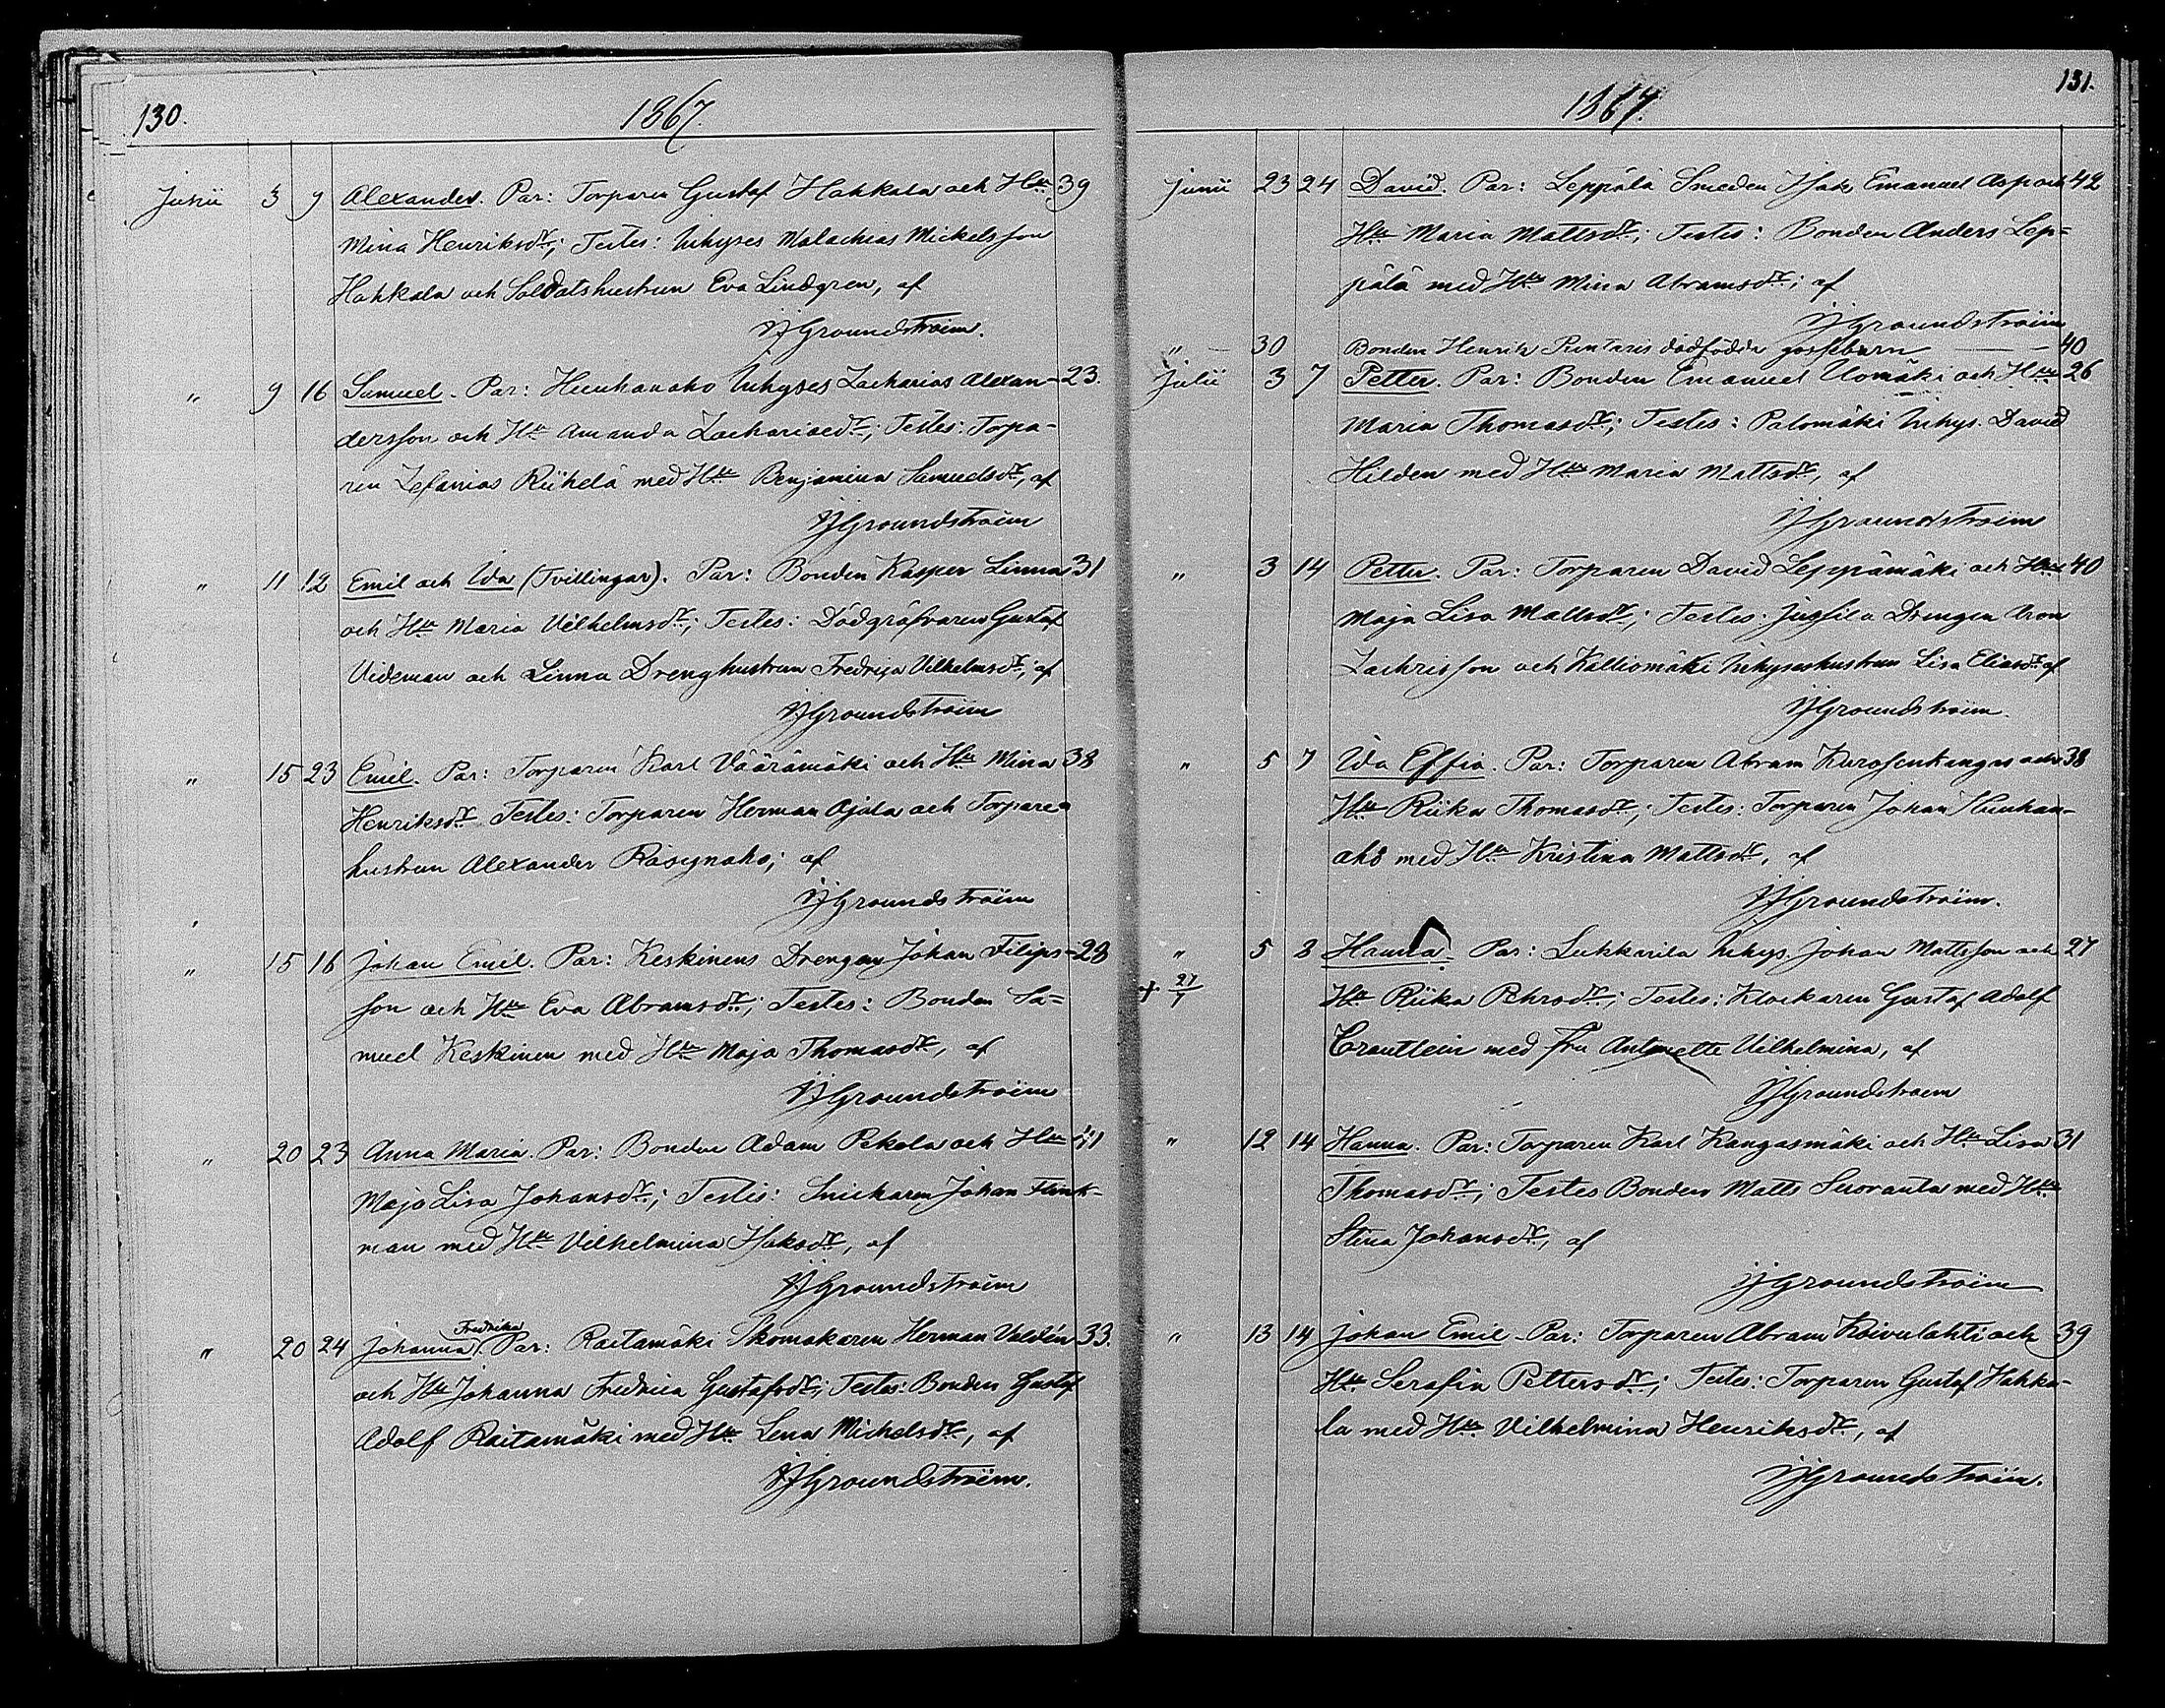 130.
1867.
Junii 3 9 Alexander. Par: Torparen Gustaf Hahkala och Hu 39
Mina Henriksdr; Testes: Inhyses Malachias Mickelsson
Hahkala och Soldatshustrun Eva Lindgren, af
JJGroundstroëm.
" 9 16 Samuel. Par: Huuhanaho Inhyses Zacharias Alexan- 23.
dersson och Hu Amanda Zachariaedr; Testes: Torpa-
ren Zefanias Riihelä med Hu Benjamina Samuelsdr, af
JJGroundstroëm
" 11 12 Emil och Ida (Tvillingar). Par: Bonden Kasper Linna 31
och Hu Maria Vilhelmsdr; Testes: Dödgräfvaren Gustaf
Videman och Linna Drenghustrun Fredrika Vilhelmsdr, af
JJGroundstroëm
" 15 23 Emil. Par: Torparen Karl Väärämäki och Hu Mina 38
Henriksdr Testes: Torparen Herman Ojala och Torpare
hustrun Alexander Räsynaho; af
JJGroundstroëm
" 15 16 Johan Emil. Par: Keskinens Drengen Johan Filips- 28
son och Hu Eva Abramsdr; Testes: Bonden Sa=
muel Keskinen med Hu Maja Thomasdr, af
JJGroundstroëm
" 20 23 Anna Maria. Par: Bonden Adam Pekola och Hu 41
Maja Lisa Johansdr; Testis: Snickaren Johan Flink-
man med Hu Vilhelmina Isaksdr, af
JJGroundstroëm
Fredrika
" 20 24 Johanna. Par: Raitamäki Skomakaren Herman Valdén 33.
och Hu Johanna Fredrica Gustafsdr; Testes: Bonden Gustaf
Adolf Raitamäki med Hu Lena Michelsdr, af
JJGroundstroëm.
131.
1867.
Junii 23 24 David. Par: Leppälä Smeden Isak Emanuel Asp och 42
Hu Maria Mattsdr; Testes: Bonden Anders Lep=
pälä med Hu Mina Abramsdr; af
JJGroundstroëm
" 30 Bonden Henrik Runtaris dödfödda gossebarn 40
Julii 3 7 Petter. Par: Bonden Emanuel Uomäki och Hu 26
Maria Thomasdr; Testes: Palomäki Inhys. David
Hilden med Hu Maria Mattsdr, af
JJGroundstroëm
" 3 14 Petter. Par: Torparen David Leppämäki och Hu 40
Maja Lisa Mattsdr; Testes: Jussila Drengen Aron
Zachrisson och Kalliomäki Inhyseshustrun Lisa Eliasdr af
JJGroundstroëm.
" 5 7 Ida Effia. Par: Torparen Abram Kurosenkangas och 38
Hu Riika Thomasdr; Testes: Torparen Johan Huuhan-
aho med Hu Kristina Mattsdr, af
JJGroundstroëm.
" 5 8 Hanna. Par: Lukkarila Inhys. Johan Mattsson och 27
+ 27/7 Hu Riika Pehrsdr; Testes: Klockaren Gustaf Adolf
Crantlein med Fru Antonette Vilhelmina, af
JJGroundstroem
" 12 14 Hanna. Par: Torparen Karl Kangasmäki och Hu Lisa 31
Thomasdr; Testes Bonden Matts Suoranta med Hu
Stina Johansdr, af
JJGroundstroëm
" 13 14 Johan Emil. Par: Torparen Abram Koivulahti och 39
Hu Serafia Pettersdr; Testes: Torparen Gustaf Hahka-
la med Hu Vilhelmina Henriksdr, af
JJGroundstroëm.